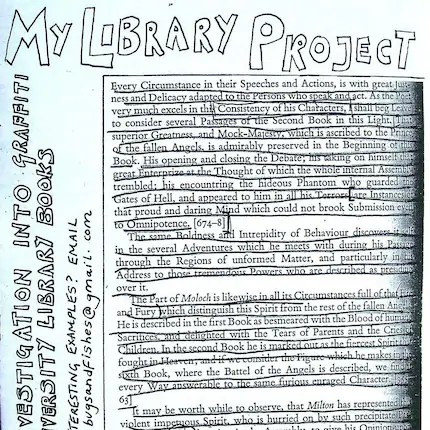 MY LIBRARY PROJECT
VESTIGATION INTO GRAFFITI
VERSITY LIBRARY BOOKS
TERESTING EXAMPLES? EMAIL
bugsandfishes@gmail.com
Every Circumstance in their Speeches and Actions, is with great
ness and Delicacy adapted to the Persons who speak and act. As the Poet
very much excels in this Consistency of his Characters, I shall beg Leave
to consider several Passages of the Second Book in this Light. That
superior Greatness, and Mock-Majesty, which is ascribed to the Prince
of the fallen Angels, is admirably preserved in the Beginning of
Book. His opening and closing the Debate; his taking on himself
great Enterprize at the Thought of which the whole infernal Assembly
trembled; his encountring the hideous Phantom who guarded
Gates of Hell, and appeared to him in all his Terrors, are Instances
that proud and daring Mind which could not brook Submission even
to Omnipotence. [674–8]
The same Boldness and Intrepidity of Behaviour discovers it
in the several Adventures which he meets with during his Passage
through the Regions of unformed Matter, and particularly in
Address to those tremendous Powers who are described as presiding
over it.
The Part of Moloch is likewise in all its Circumstances full of that
and Fury which distinguish this Spirit from the rest of the fallen
He is described in the first Book as besmeared with the Blood of human
Sacrifices, and delighted with the Tears of Parents and the Cries
Children. In the second Book he is marked out as the fiercest Spirit
fought in Heaven; and if we consider the Figure which he makes in
sixth Book, where the Battel of the Angels is described, we find
every Way answerable to the same furious enraged Character.
63]
It may be worth while to observe, that Milton has represented
violent impetuous Spirit, who is hurried on by such precipitate